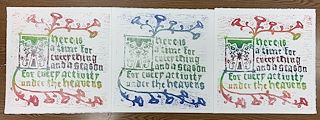 There is
a time for
everything
and a season
for every activity
under the heavens
There is
a time for
everything
and a season
for every activity
under the heavens
There is
a time for
everything
and a season
for every activity
under the heavens